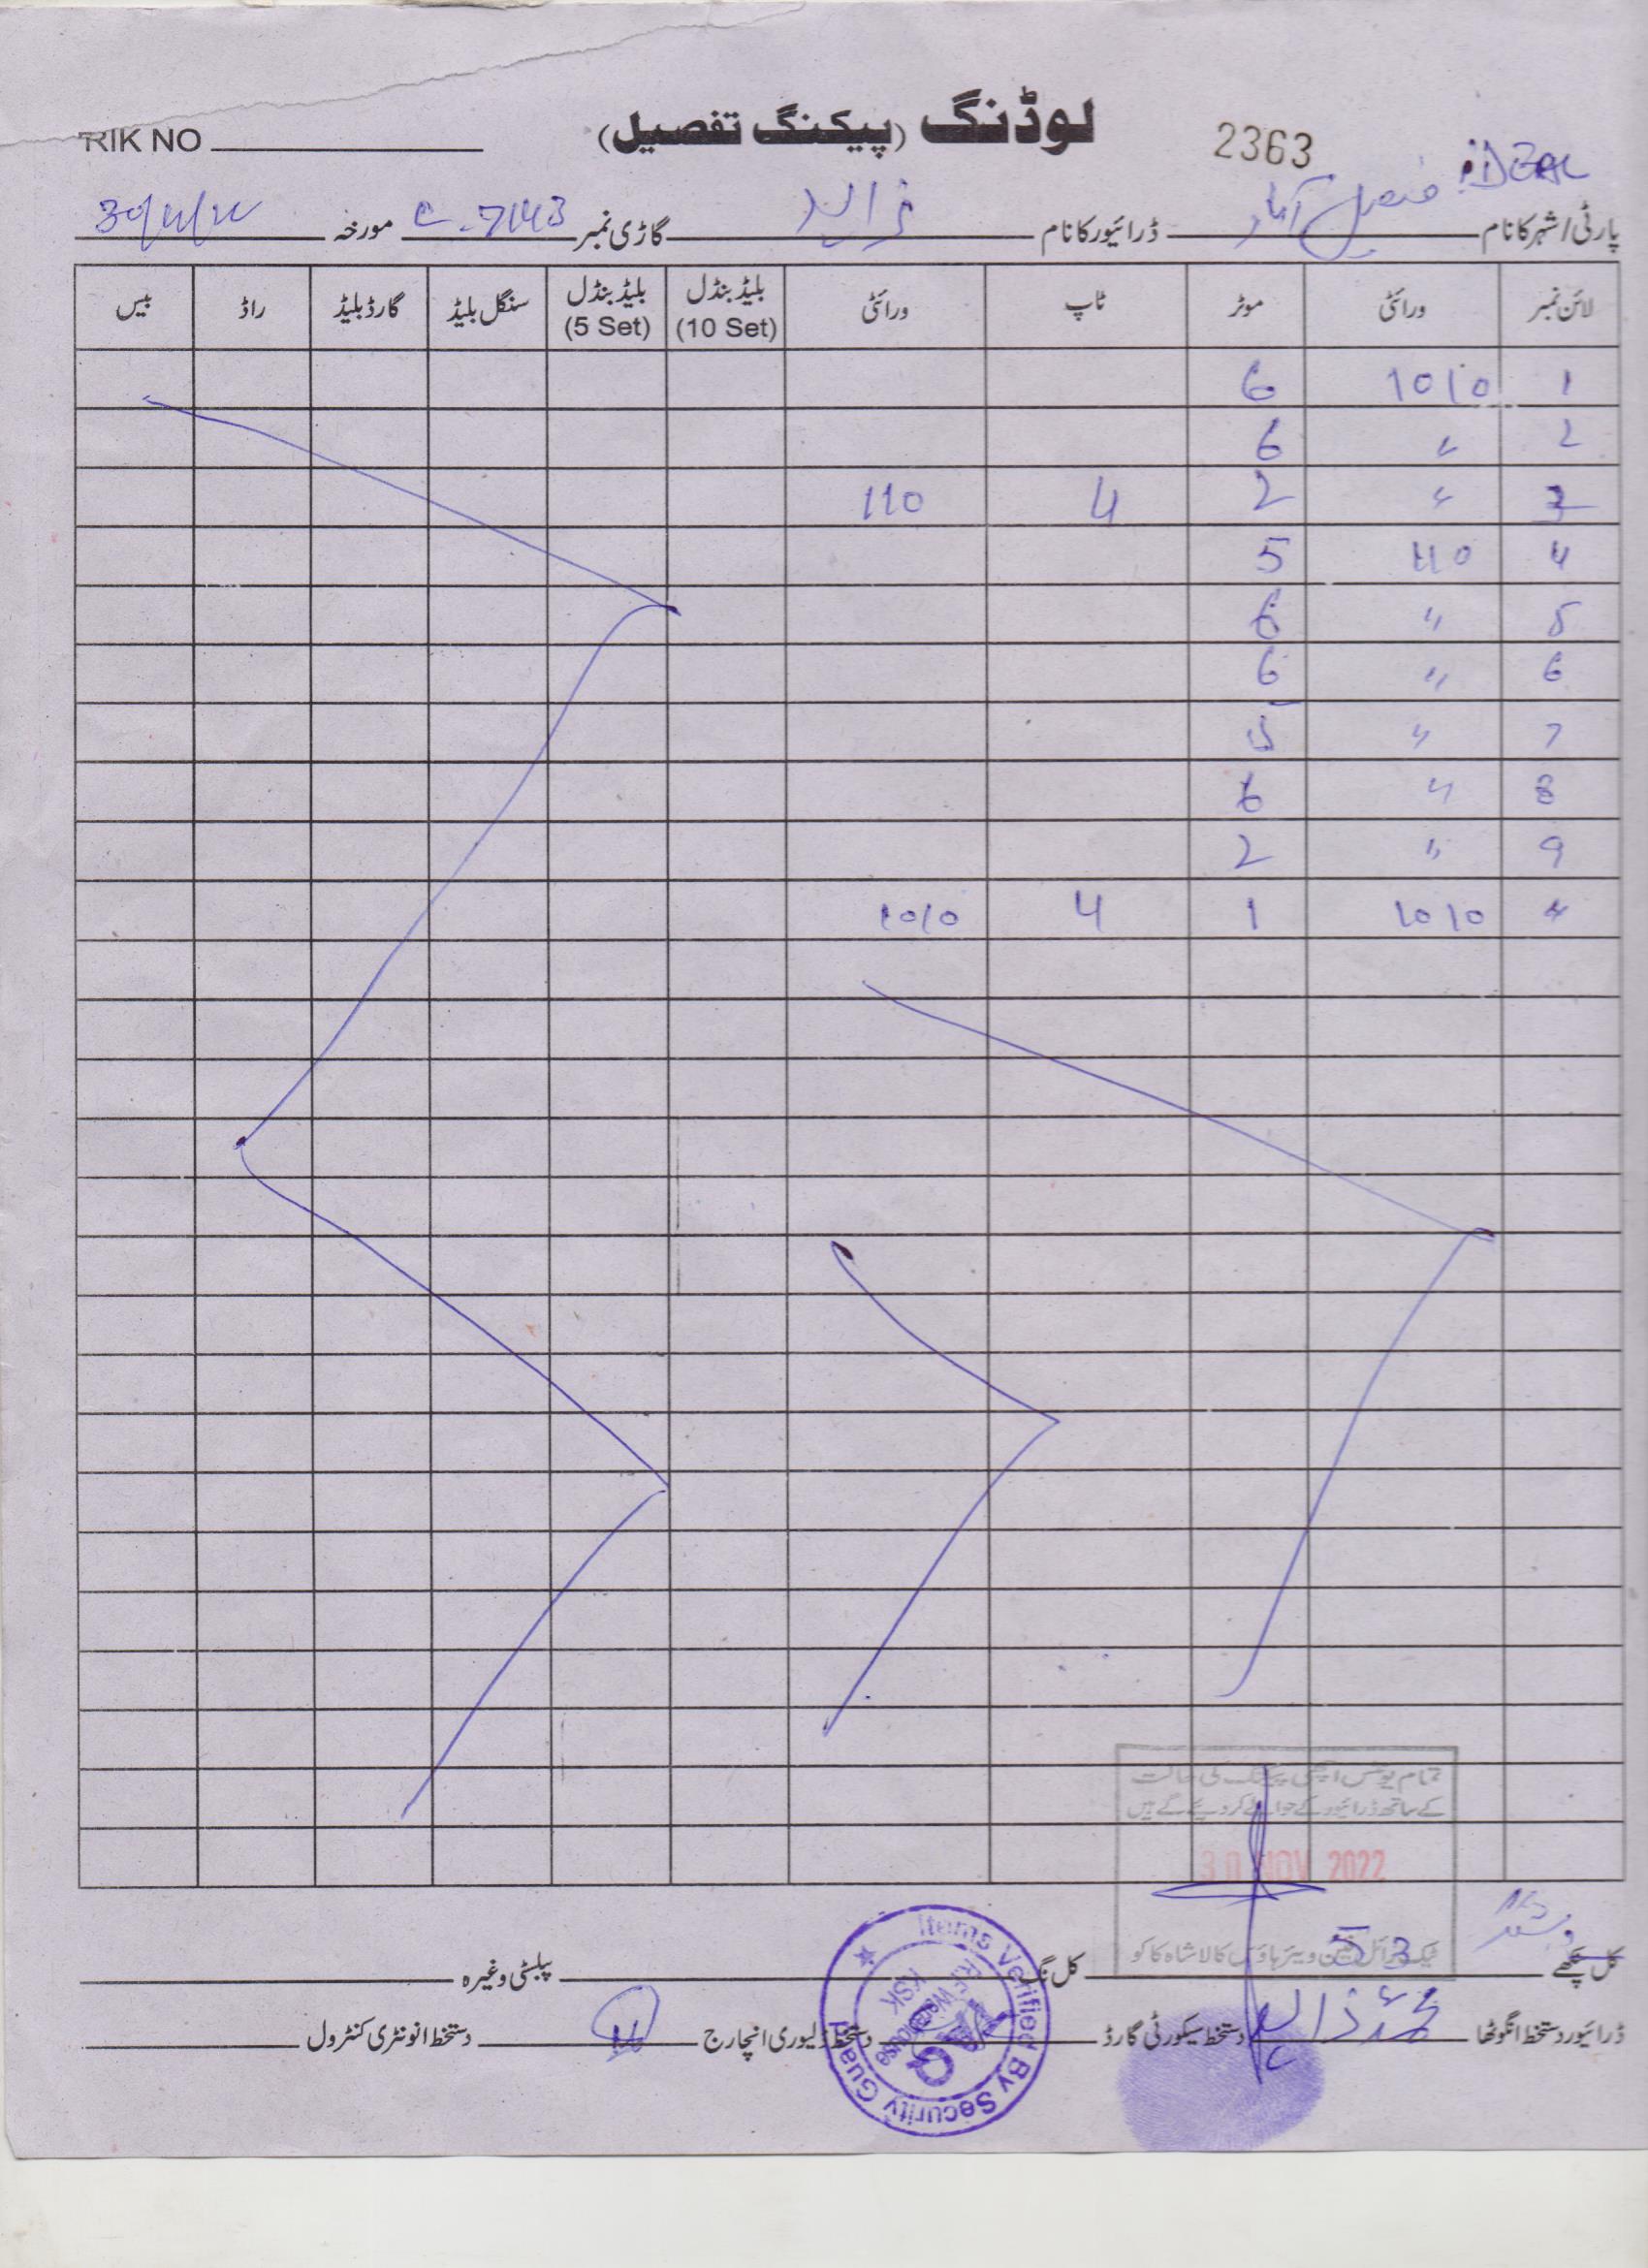 لوڈنگ (پیکنگ تفصیل)
RIK NO
2363
iDEAL
پارٹی/شہر کا نام فیصل آباد ڈرائیور کا نام گاڑی نمبر C-7143 مورخہ 30/11/22
لائن نمبر ورائٹی موٹر ٹاپ ورائٹی بلیڈ بنڈل (10 Set) بلیڈ بنڈل (5 Set) سنگل بلیڈ گارڈ بلیڈ راڈ بیس
1 1010 6
2 〃 6
3 〃 2 4 110
4 110 5
5 〃 6
6 〃 6
7 〃 5
8 〃 6
9 〃 2
〃 1010 1 4 1010
تمام یونٹس اچھی پیکنگ کی حالت
کے ساتھ ڈرائیور کے حوالے کر دیئے گئے ہیں
30 NOV 2022
کل پنکھے 53 کل نگ پلبٹی وغیرہ
ڈرائیور دستخط انگوٹھا محمد دستخط سیکورٹی گارڈ دستخط ڈلیوری انچارج دستخط انونٹری کنٹرول
Items Verified By Security Guard
R.F Warehouse
KSK